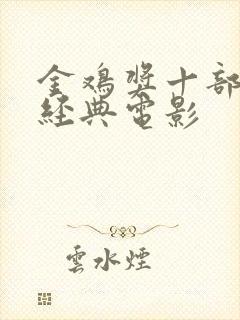 金鸡奖十部
经典电影
雲水煙